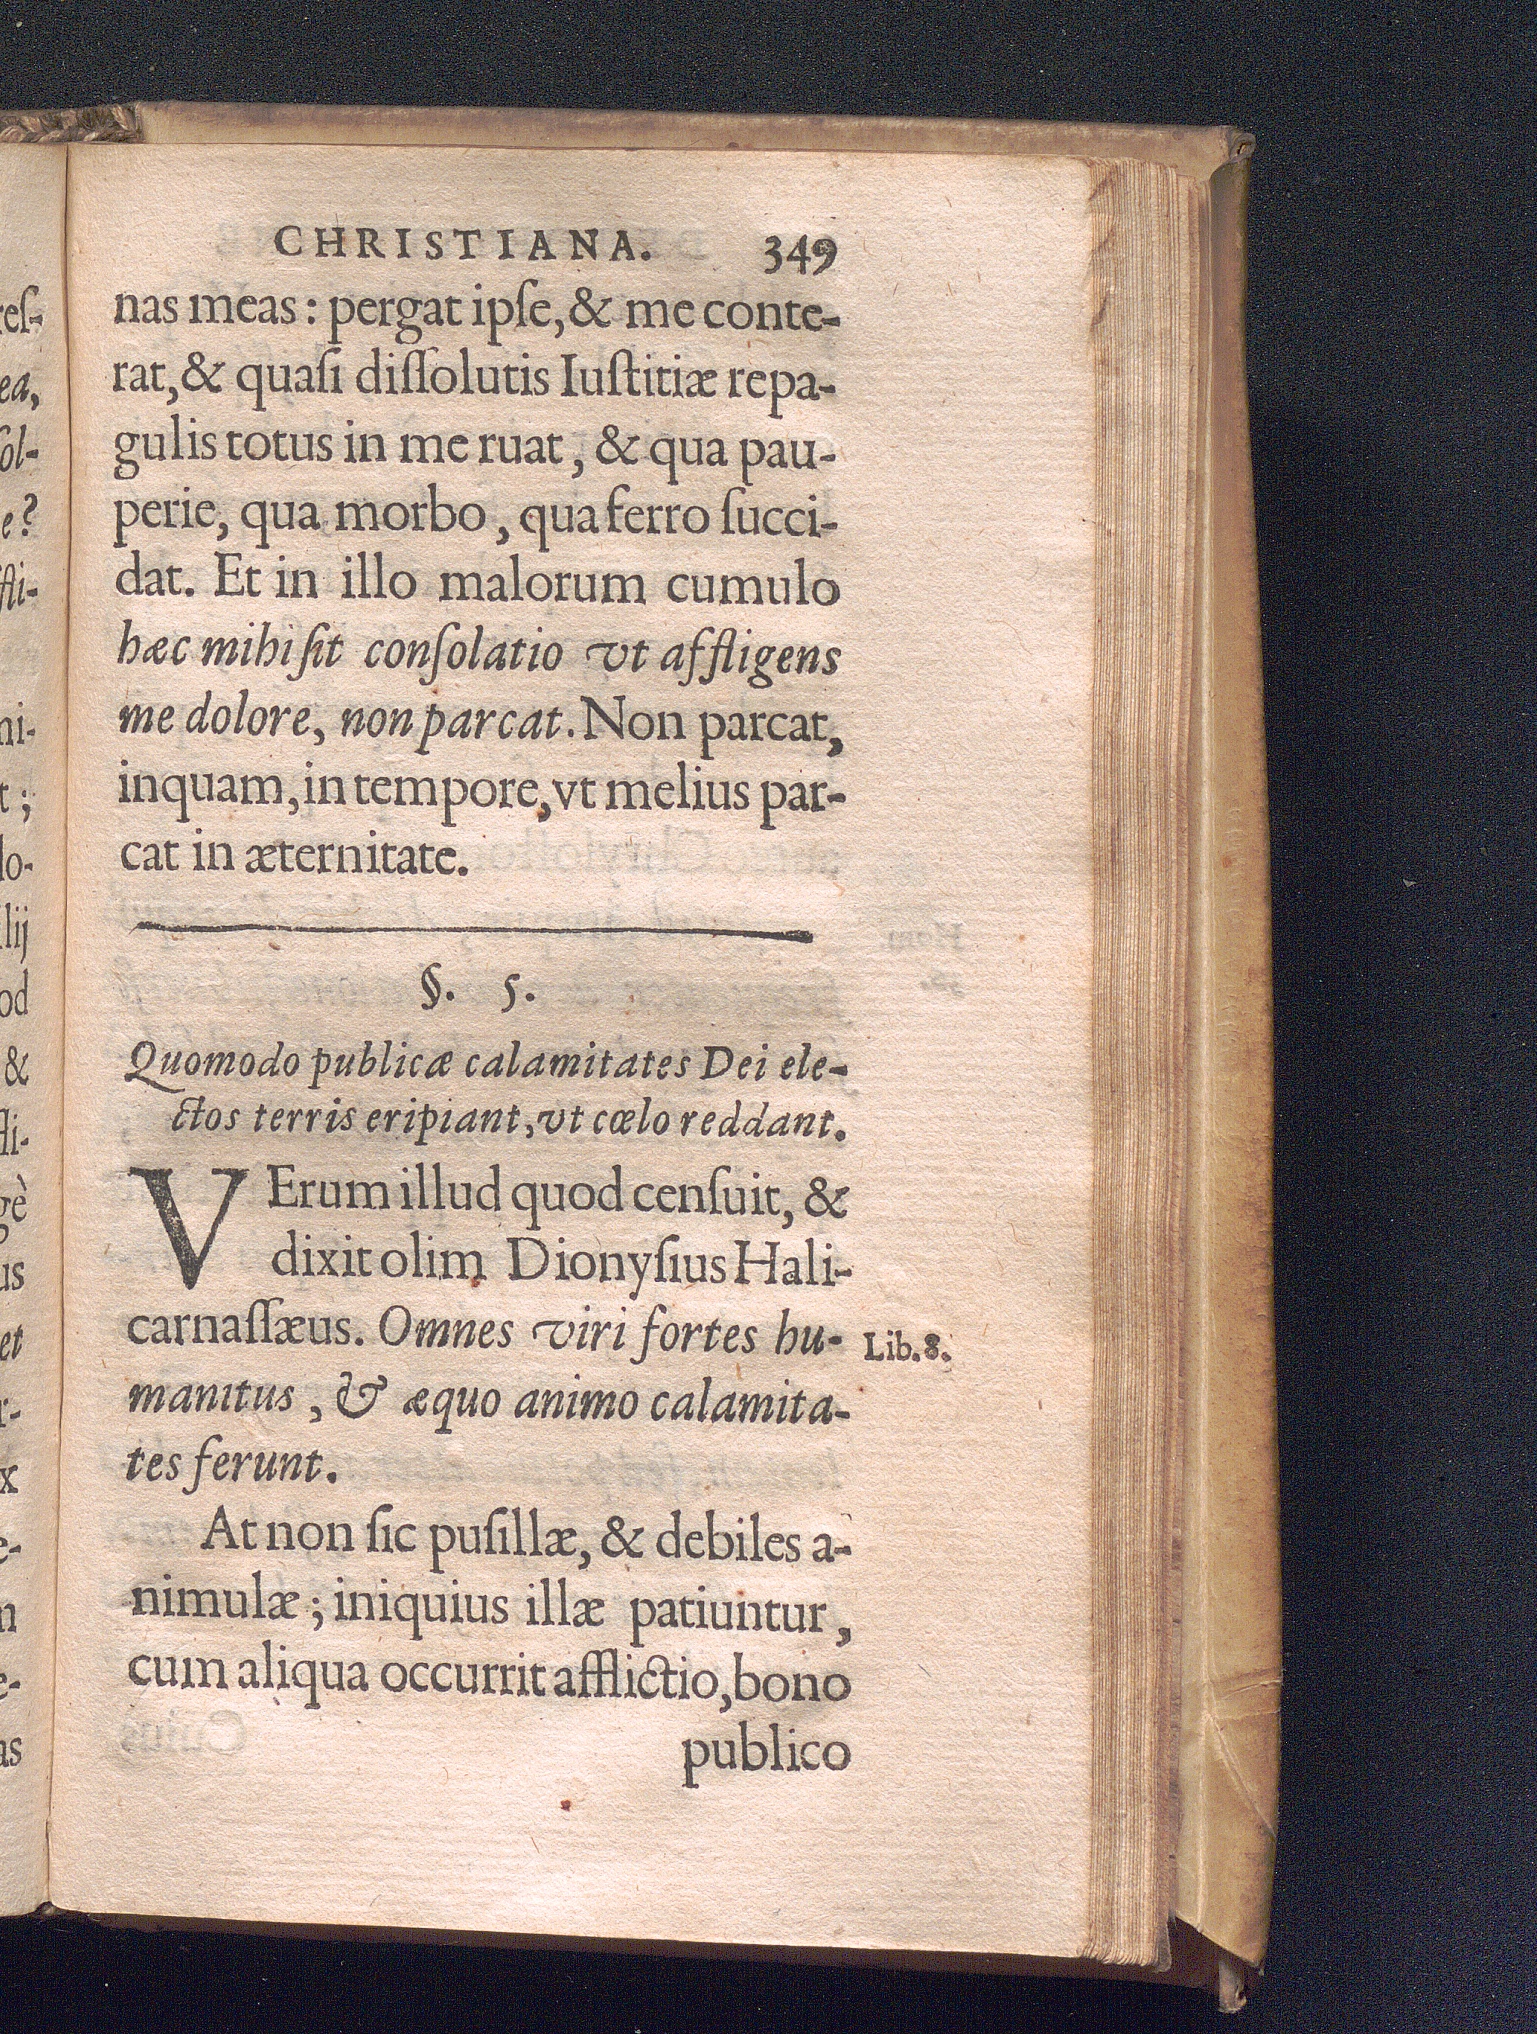 CHRISTIANA. 349
nas meas: pergat ipſe, & me conte-
rat, & quaſi diſſolutis Iuſtitiæ repa-
gulis totus in me ruat, & qua pau-
perie, qua morbo, qua ferro ſucci-
dat. Et in illo malorum cumulo
hæc mihi ſit conſolatio vt affligens
me dolore, non parcat. Non parcat,
inquam, in tempore, vt melius par-
cat in æternitate.
§. 5.
Quomodo publicæ calamitates Dei ele-
ctos terris eripiant, vt cœlo reddant.
VErum illud quod cenſuit, &
dixit olim Dionyſius Hali-
carnaſſæus. Omnes viri fortes hu-
Lib. 8.
manitus, & æquo animo calamita-
tes ferunt.
At non ſic puſillæ, & debiles a-
nimulæ; iniquius illæ patiuntur,
cum aliqua occurrit afflictio, bono
publico